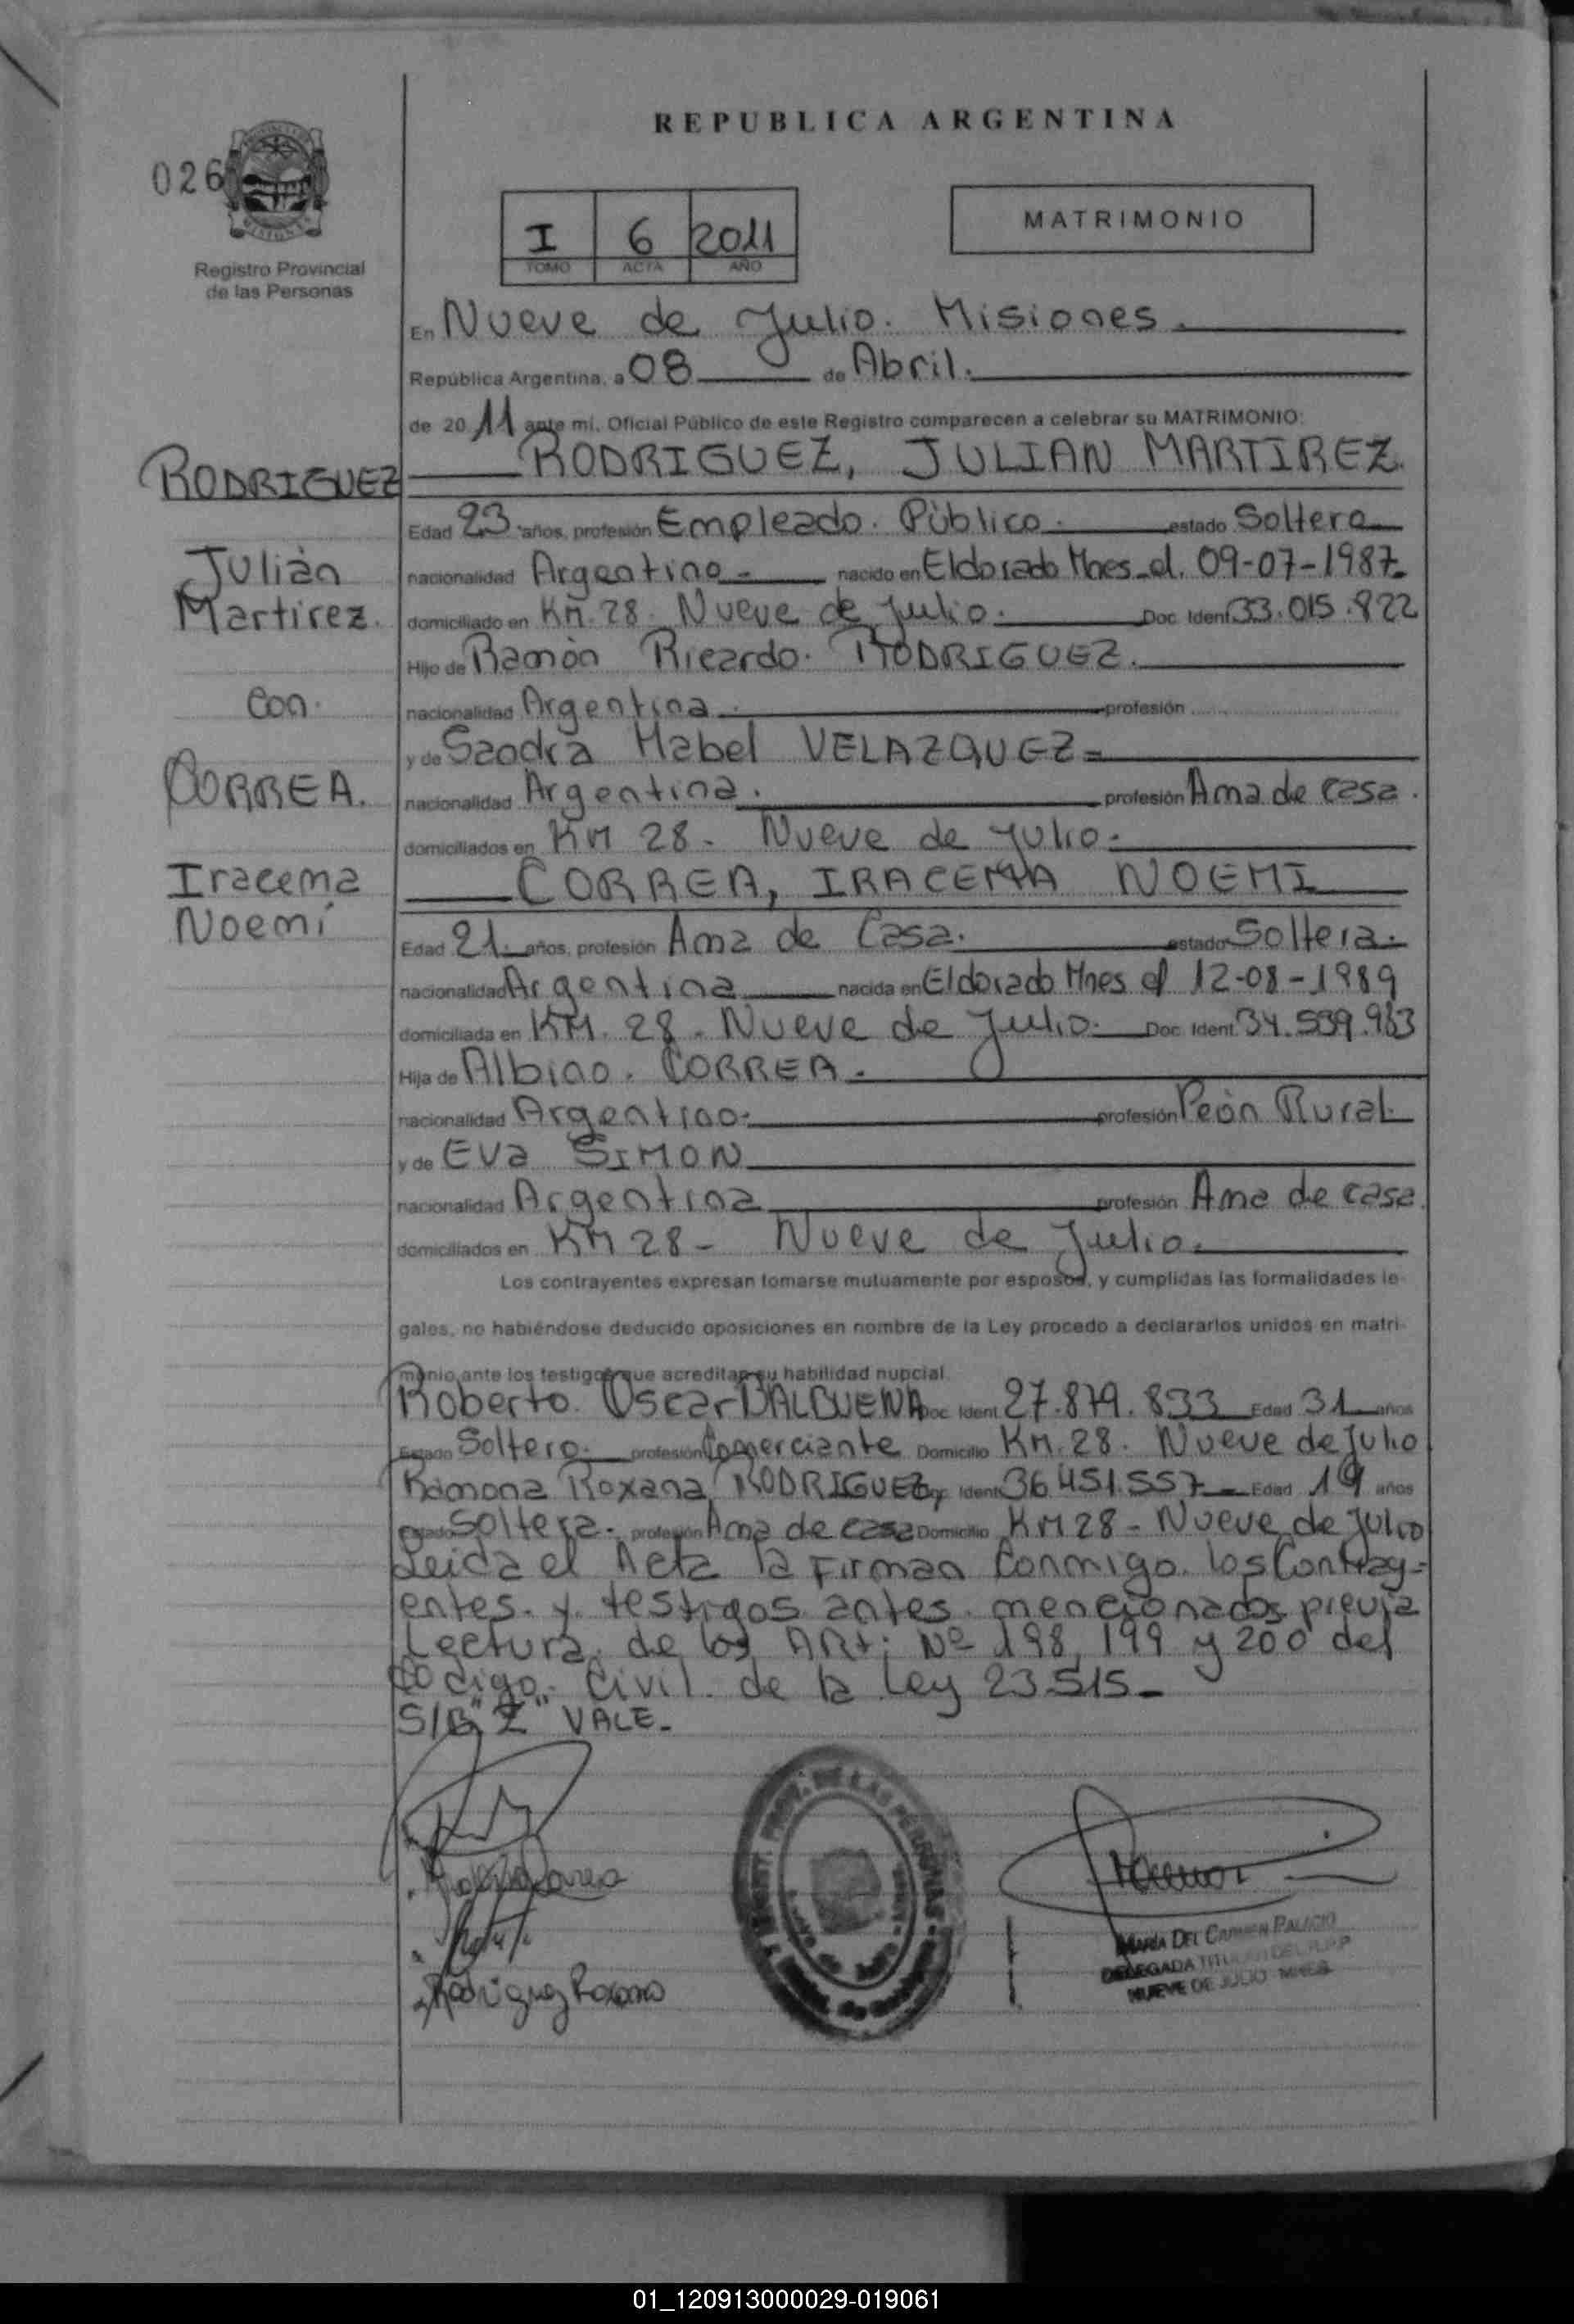 REPUBLICA ARGENTINA
026
Registro Provincial
de las Personas
I 6 2011
TOMO ACTA AÑO
MATRIMONIO
En Nueve de Julio. Misiones.
República Argentina, a 08 de Abril.
de 2011 ante mí, Oficial Público de este Registro comparecen a celebrar su MATRIMONIO:
RODRIGUEZ
Juliàn
Martirez.
Con.
CORREA.
Iracema
Noemí
RODRIGUEZ, JULIAN MARTIREZ.
Edad 23 años, profesión Empleado. Pùblico. estado Soltero
nacionalidad Argentino nacido en Eldorado Mnes el. 09-07-1987
domiciliado en KM. 28. Nueve de Julio. Doc. Ident. 33.015.822
Hijo de Ramòn Ricardo. RODRIGUEZ.
nacionalidad Argentina. profesión
y de Sandra Mabel VELAZQUEZ
nacionalidad Argentina. profesión Ama de casa.
domiciliados en KM 28 - Nueve de Julio.
CORREA, IRACEMA NOEMI
Edad 21. años, profesión Ama de Casa. estado Soltera.
nacionalidad Argentina nacida en Eldorado Mnes el 12-08-1989
domiciliada en KM. 28. Nueve de Julio. Doc. Ident. 34.539.983
Hija de Albino. CORREA.
nacionalidad Argentino. profesión Peòn Rural
y de Eva SIMON
nacionalidad Argentina profesión Ama de casa
domiciliados en KM 28 - Nueve de Julio.
Los contrayentes expresan tomarse mutuamente por esposos, y cumplidas las formalidades le-
gales, no habiéndose deducido oposiciones en nombre de la Ley procedo a declararlos unidos en matri-
monio ante los testigos que acreditan su habilidad nupcial.
Roberto. Oscar BALBUENA Doc. Ident. 27.879.833 Edad 31 años
Estado Soltero. profesión Comerciante Domicilio KM. 28. Nueve de Julio
Ramona Roxana RODRIGUEZ, Doc. Ident. 36.451.557 Edad 19 años
Estado Soltera. profesión Ama de casa Domicilio KM 28 - Nueve de Julio
Leida el Acta la Firman Conmigo. los Contray-
entes. y. testigos antes. mencionados previa
Lectura. de los ARt: Nº 198, 199 y 200 del
Codigo. Civil. de la Ley 23515-
S/B "Z" VALE-
Rodriguez Roxana
MARÍA DEL CARMEN PALACIO
DELEGADA TITULAR DEL R.P.P
NUEVE DE JULIO - MNES.
01_120913000029-019061